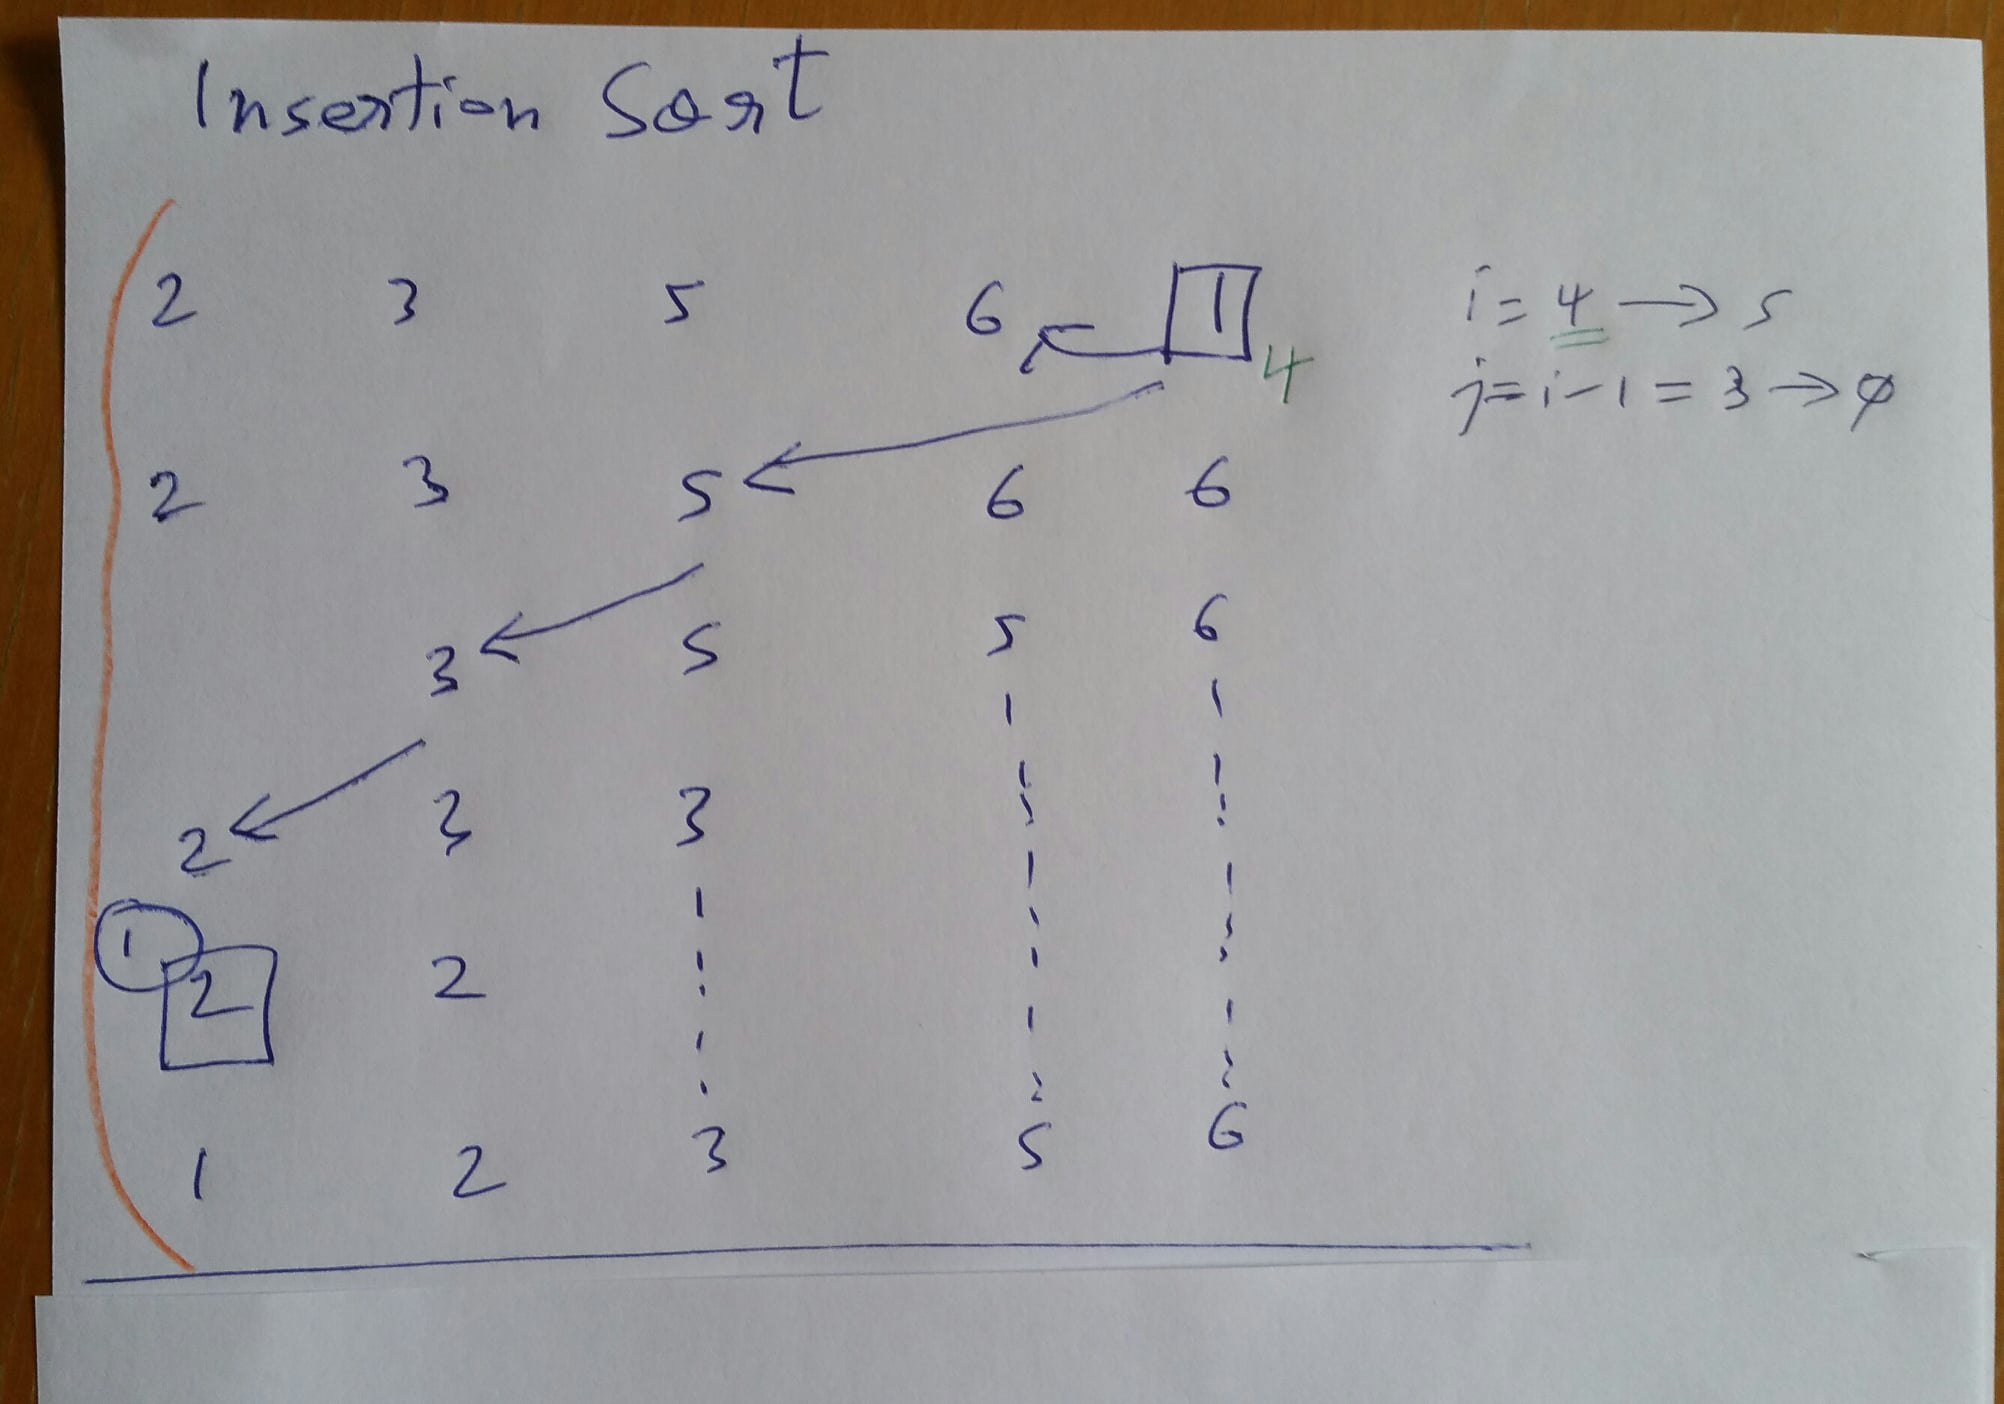 Insertion Sort
2 3 5 6 1 i = 4 → 5
4
j = i - 1 = 3 → 0
2 3 5 6 6
3 5 5 6
2 3 3
1
2 2
1 2 3 5 6